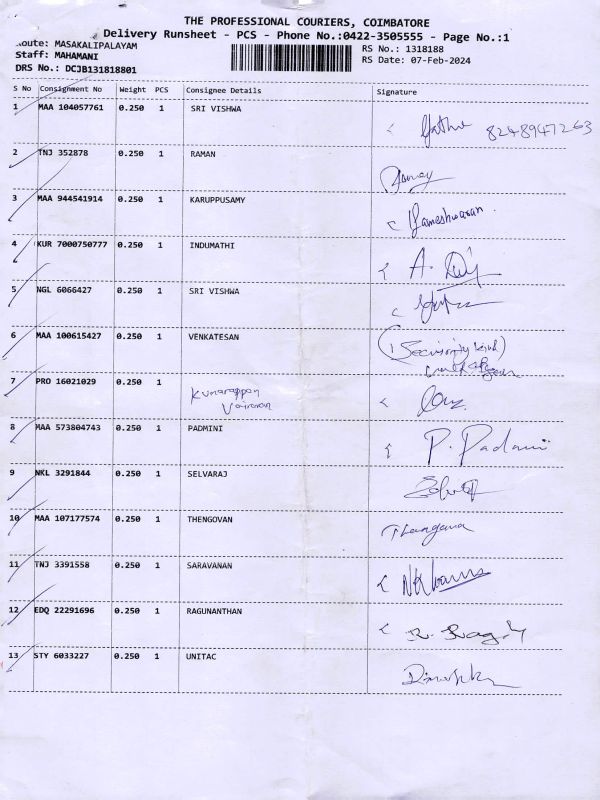 THE PROFESSIONAL COURIERS, COIMBATORE
Delivery Runsheet - PCS - Phone No.:0422-3505555 - Page No.:1
Route: MASAKALIPALAYAM
Staff: MAHAMANI
DRS No.: DCJB131818801
RS No.: 1318188
RS Date: 07-Feb-2024
S No Consignment No Weight PCS Consignee Details Signature
1 MAA 104057761 0.250 1 SRI VISHWA 8248947263
2 TNJ 352878 0.250 1 RAMAN
3 MAA 944541914 0.250 1 KARUPPUSAMY Yameshwaran
4 KUR 7000750777 0.250 1 INDUMATHI
5 NGL 6066427 0.250 1 SRI VISHWA
6 MAA 100615427 0.250 1 VENKATESAN
7 PRO 16021029 0.250 1 Kumarappan
Vairavan
8 MAA 573804743 0.250 1 PADMINI P. Padmini
9 NKL 3291844 0.250 1 SELVARAJ
10 MAA 107177574 0.250 1 THENGOVAN
11 TNJ 3391558 0.250 1 SARAVANAN
12 EDQ 22291696 0.250 1 RAGUNANTHAN
13 STY 6033227 0.250 1 UNITAC